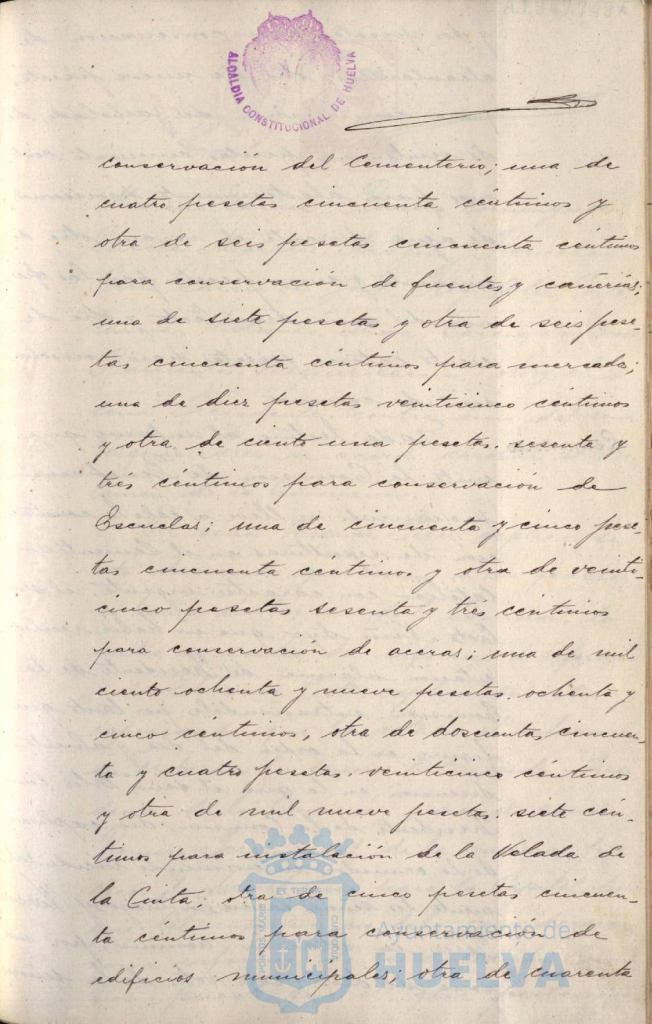 ALCALDIA CONSTITUCIONAL DE HUELVA
conservación del Cementerio; una de
cuatro pesetas cincuenta céntimos y
otra de seis pesetas cincuenta céntimos
para conservación de fuentes y cañerías;
una de siete pesetas y otra de seis pese-
tas cincuenta céntimos para mercados;
una de diez pesetas veinticinco céntimos
y otra de ciento una pesetas sesenta y
tres céntimos para conservación de
Escuelas; una de cincuenta y cinco pese-
tas cincuenta céntimos y otra de veinti-
cinco pesetas sesenta y tres céntimos
para conservación de aceras; una de mil
ciento ochenta y nueve pesetas ochenta y
cinco céntimos, otra de doscientas cincuen-
ta y cuatro pesetas veinticinco céntimos
y otra de mil nueve pesetas siete cén-
timos para instalación de la Velada de
la Cinta; otra de cinco pesetas cincuen-
ta céntimos para conservación de
edificios municipales; otra de cuarenta
Ayuntamiento de
HUELVA